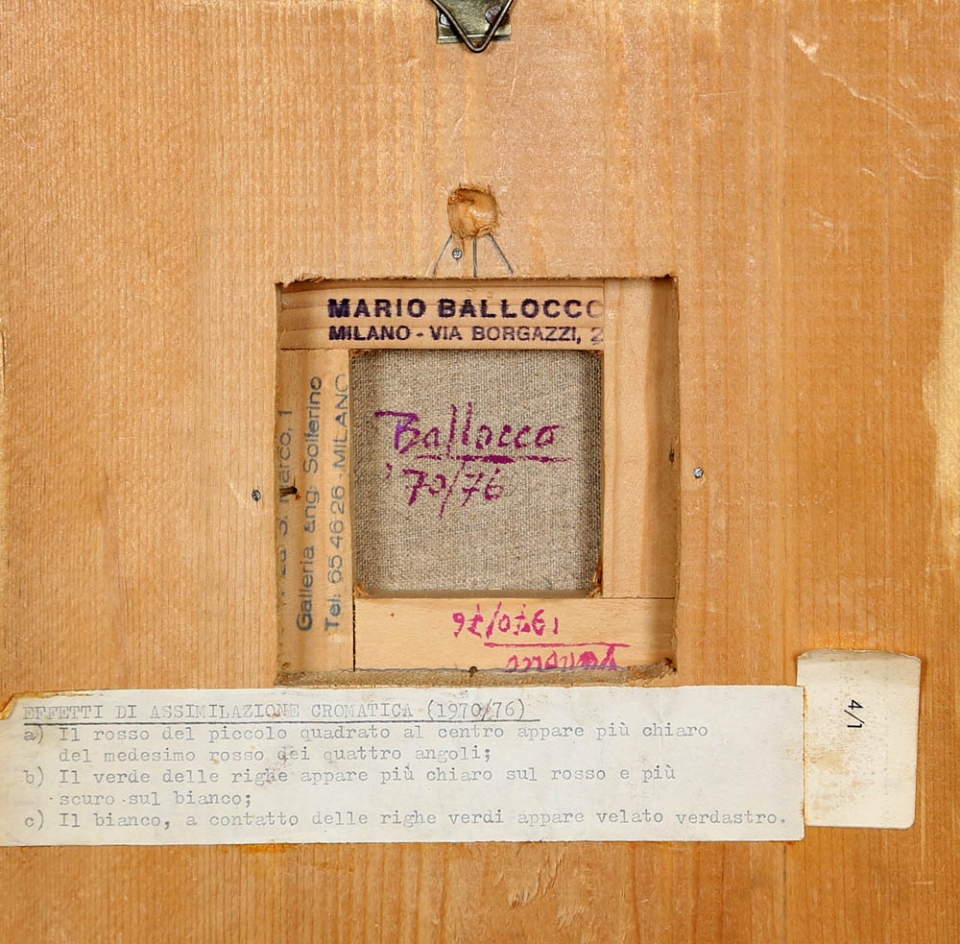 MARIO BALLOCCO
MILANO - VIA BORGAZZI, 2
Marco, 1
Galleria ang. Solferino
Tel: 65 46 26 - MILANO
Ballocco
'70/76
1970/76
EFFETTI DI ASSIMILAZIONE CROMATICA (1970/76)
a) Il rosso del piccolo quadrato al centro appare più chiaro
del medesimo rosso dei quattro angoli;
b) Il verde delle righe appare più chiaro sul rosso e più
scuro sul bianco;
c) Il bianco, a contatto delle righe verdi appare velato verdastro.
4/1